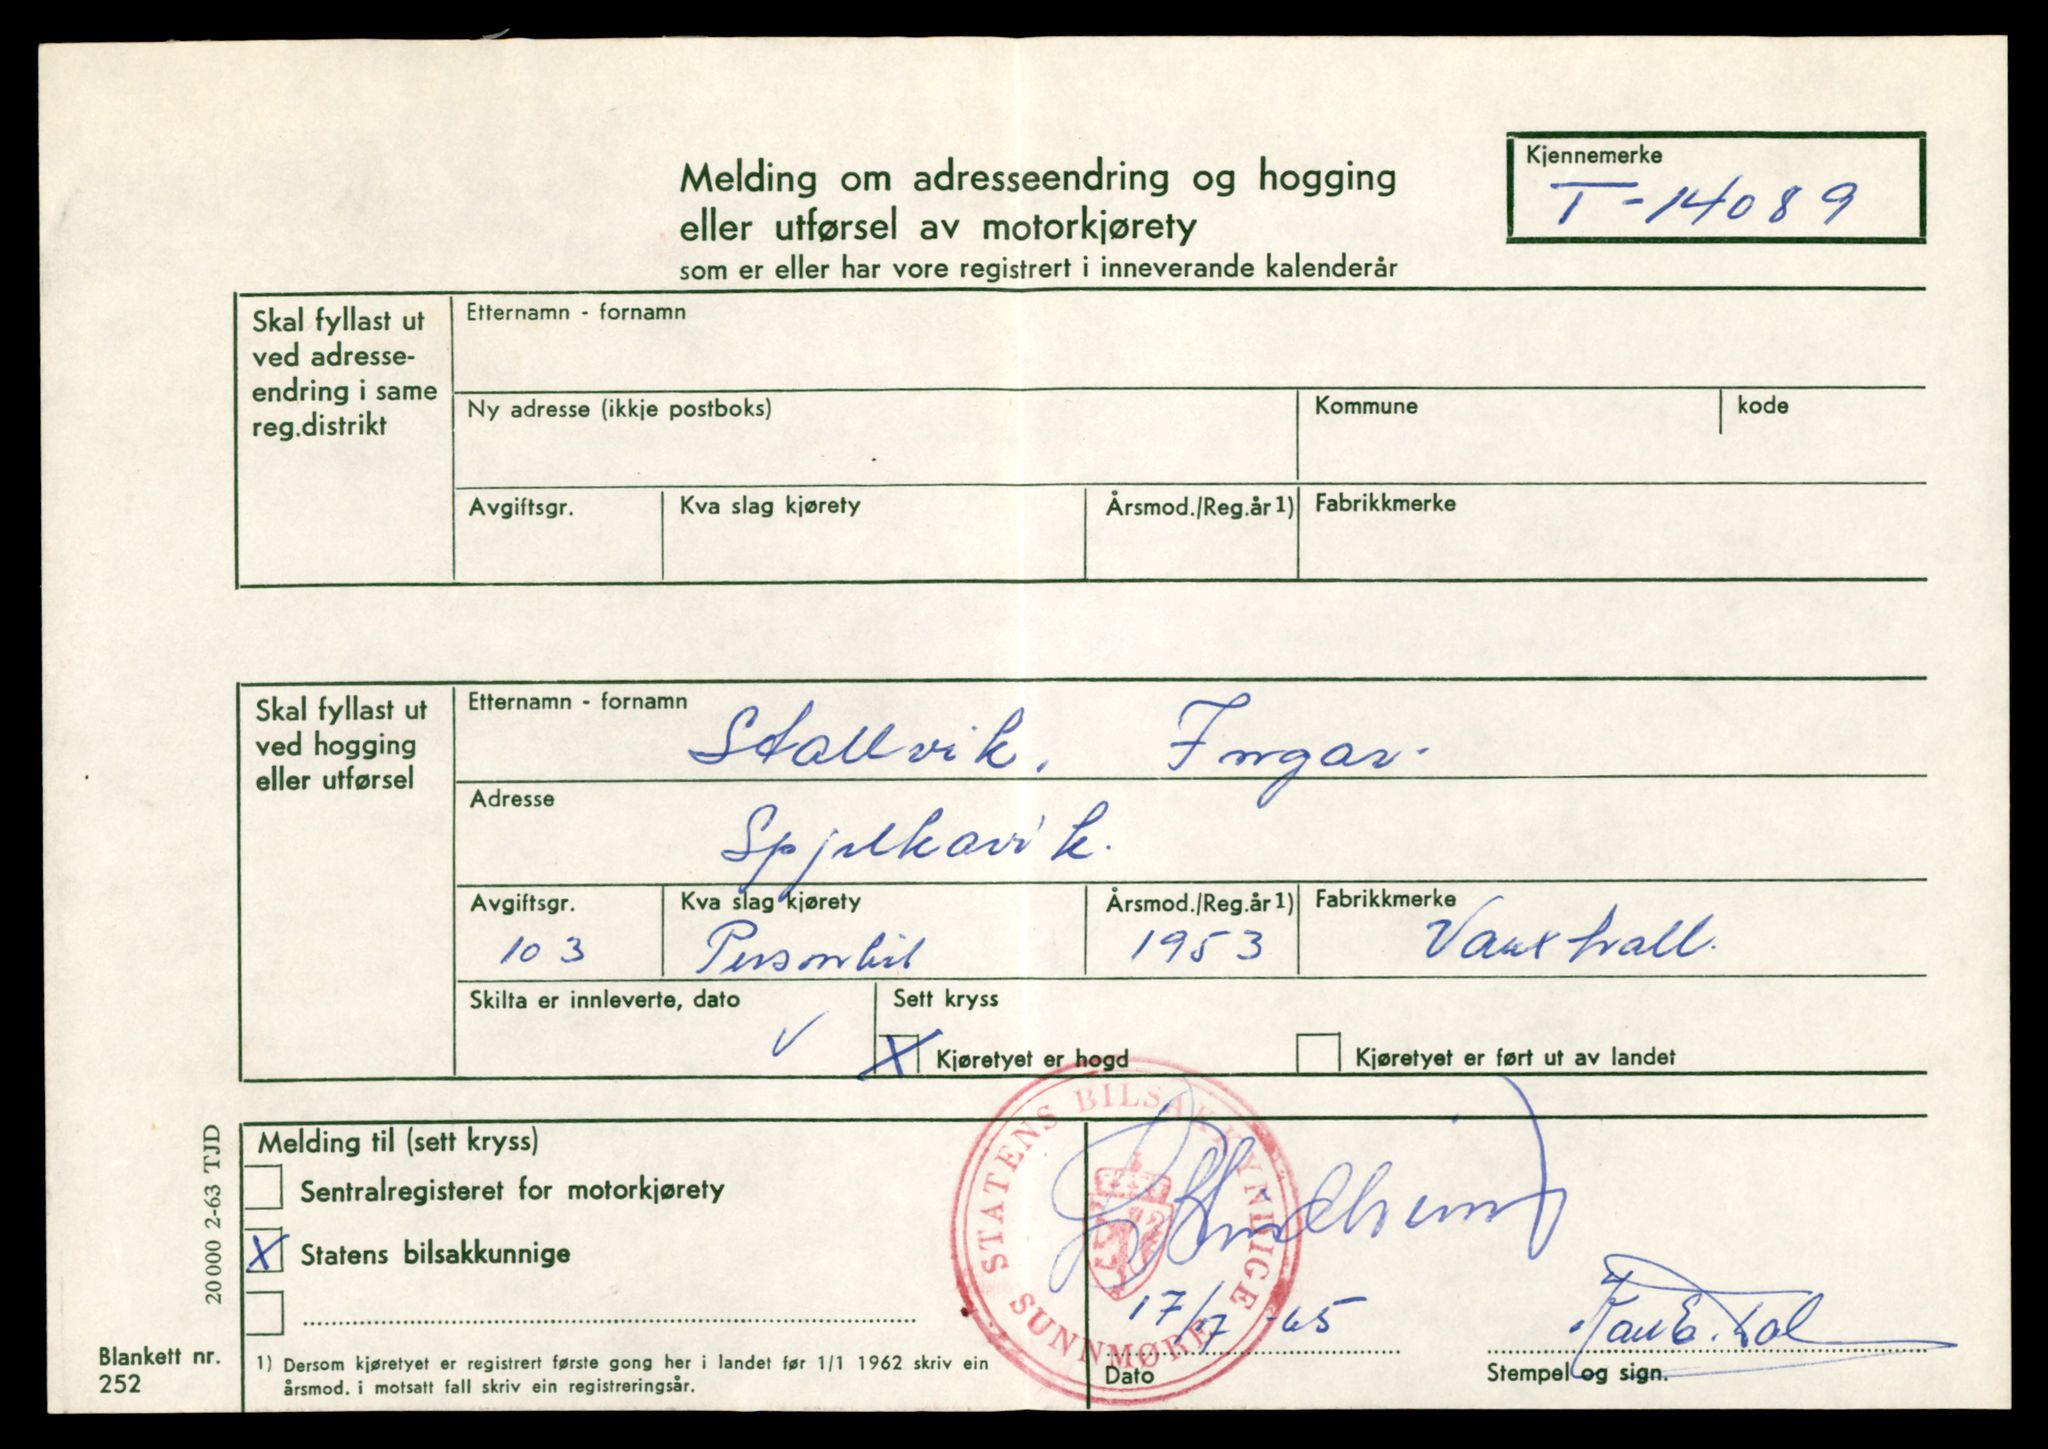 Melding om adresseendring og hogging
eller utførsel av motorkjørety
som er eller har vore registrert i inneverande kalenderår
Kjennemerke
T-14089
Skal fyllast ut
ved adresse-
endring i same
reg.distrikt
Etternamn - fornamn
Ny adresse (ikkje postboks)
Kommune
kode
Avgiftsgr.
Kva slag kjørety
Årsmod./Reg.år 1)
Fabrikkmerke
Skal fyllast ut
ved hogging
eller utførsel
Etternamn - fornamn
Stallvik, Ingar.
Adresse
Spjelkavik.
Avgiftsgr.
Kva slag kjørety
Årsmod./Reg.år 1)
Fabrikkmerke
103
Personbil
1953
Vauxhall.
Skilta er innleverte, dato
Sett kryss
X Kjøretyet er hogd
Kjøretyet er ført ut av landet
Melding til (sett kryss)
Sentralregisteret for motorkjørety
X Statens bilsakkunnige
STATENS BILSAKKYNDIGE
SUNNMØRE
17/7 -65
Dato
Stempel og sign.
1) Dersom kjøretyet er registrert første gong her i landet før 1/1 1962 skriv ein
årsmod. i motsatt fall skriv ein registreringsår.
20 000 2-63 TJD
Blankett nr.
252